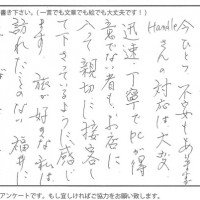 書き下さい。(一言でも文章でも絵でも大丈夫です！)
今ひとつ不安もあります
Handleさんの対応は大変
迅速、丁寧でPCが得
意でない者もお店に
入って親切に接客し
て下さっているように感じ
ます 旅が好きな私は
訪れたことのない福井に
アンケートです。もし宜しければご協力をお願い致します。